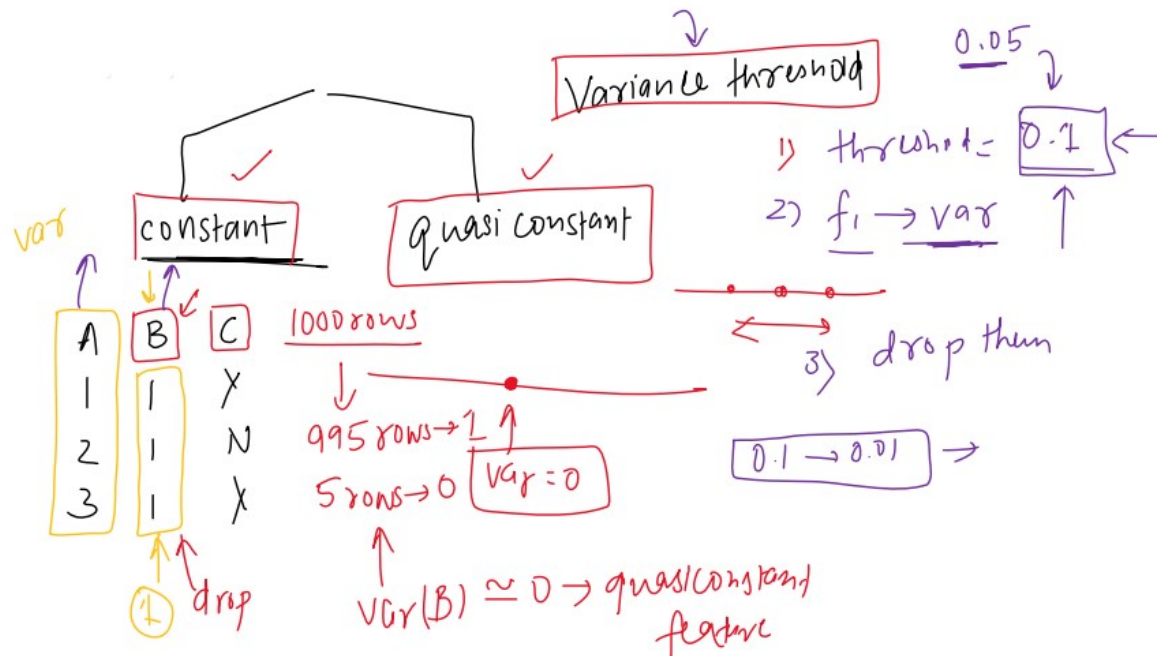 Variance threshold
0.05
1) threshold = 0.1
2) f1 → var
3) drop them
0.1 → 0.01 →
constant
quasi constant
var
A B C
1 1 Y
2 1 N
3 1 Y
1 drop
1000 rows
995 rows → 1
5 rows → 0
var = 0
var(B) ≃ 0 → quasiconstant
feature